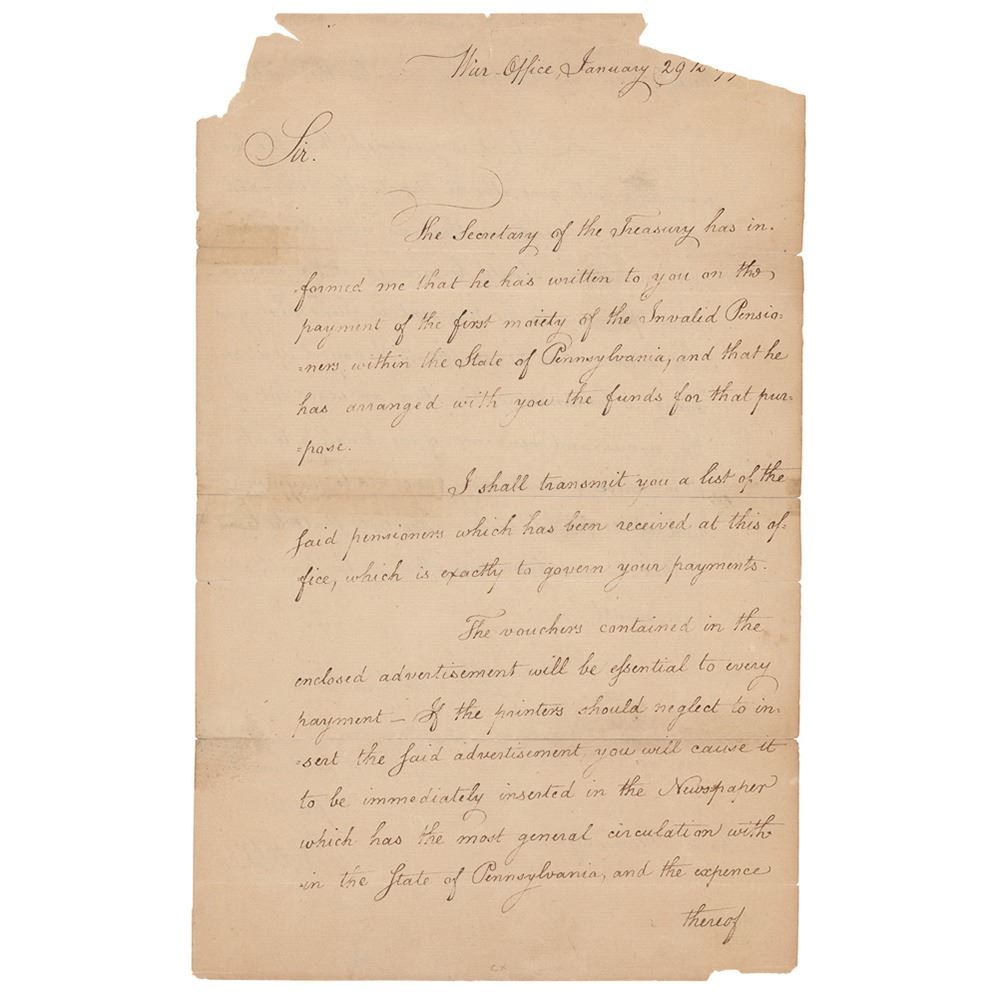 War Office January 29th 17
Sir.
The Secretary of the Treasury has in-
formed me that he has written to you on the
payment of the first moiety of the Invalid Pensio=
=ners within the State of Pennsylvania, and that he
has arranged with you the funds for that pur=
=pose.
I shall transmit you a list of the
said pensioners which has been received at this of=
fice, which is exactly to govern your payments.
The vouchers contained in the
enclosed advertisement will be essential to every
payment — If the printers should neglect to in=
=sert the said advertisement, you will cause it
to be immediately inserted in the Newspaper
which has the most general circulation with
in the State of Pennsylvania, and the expence
thereof